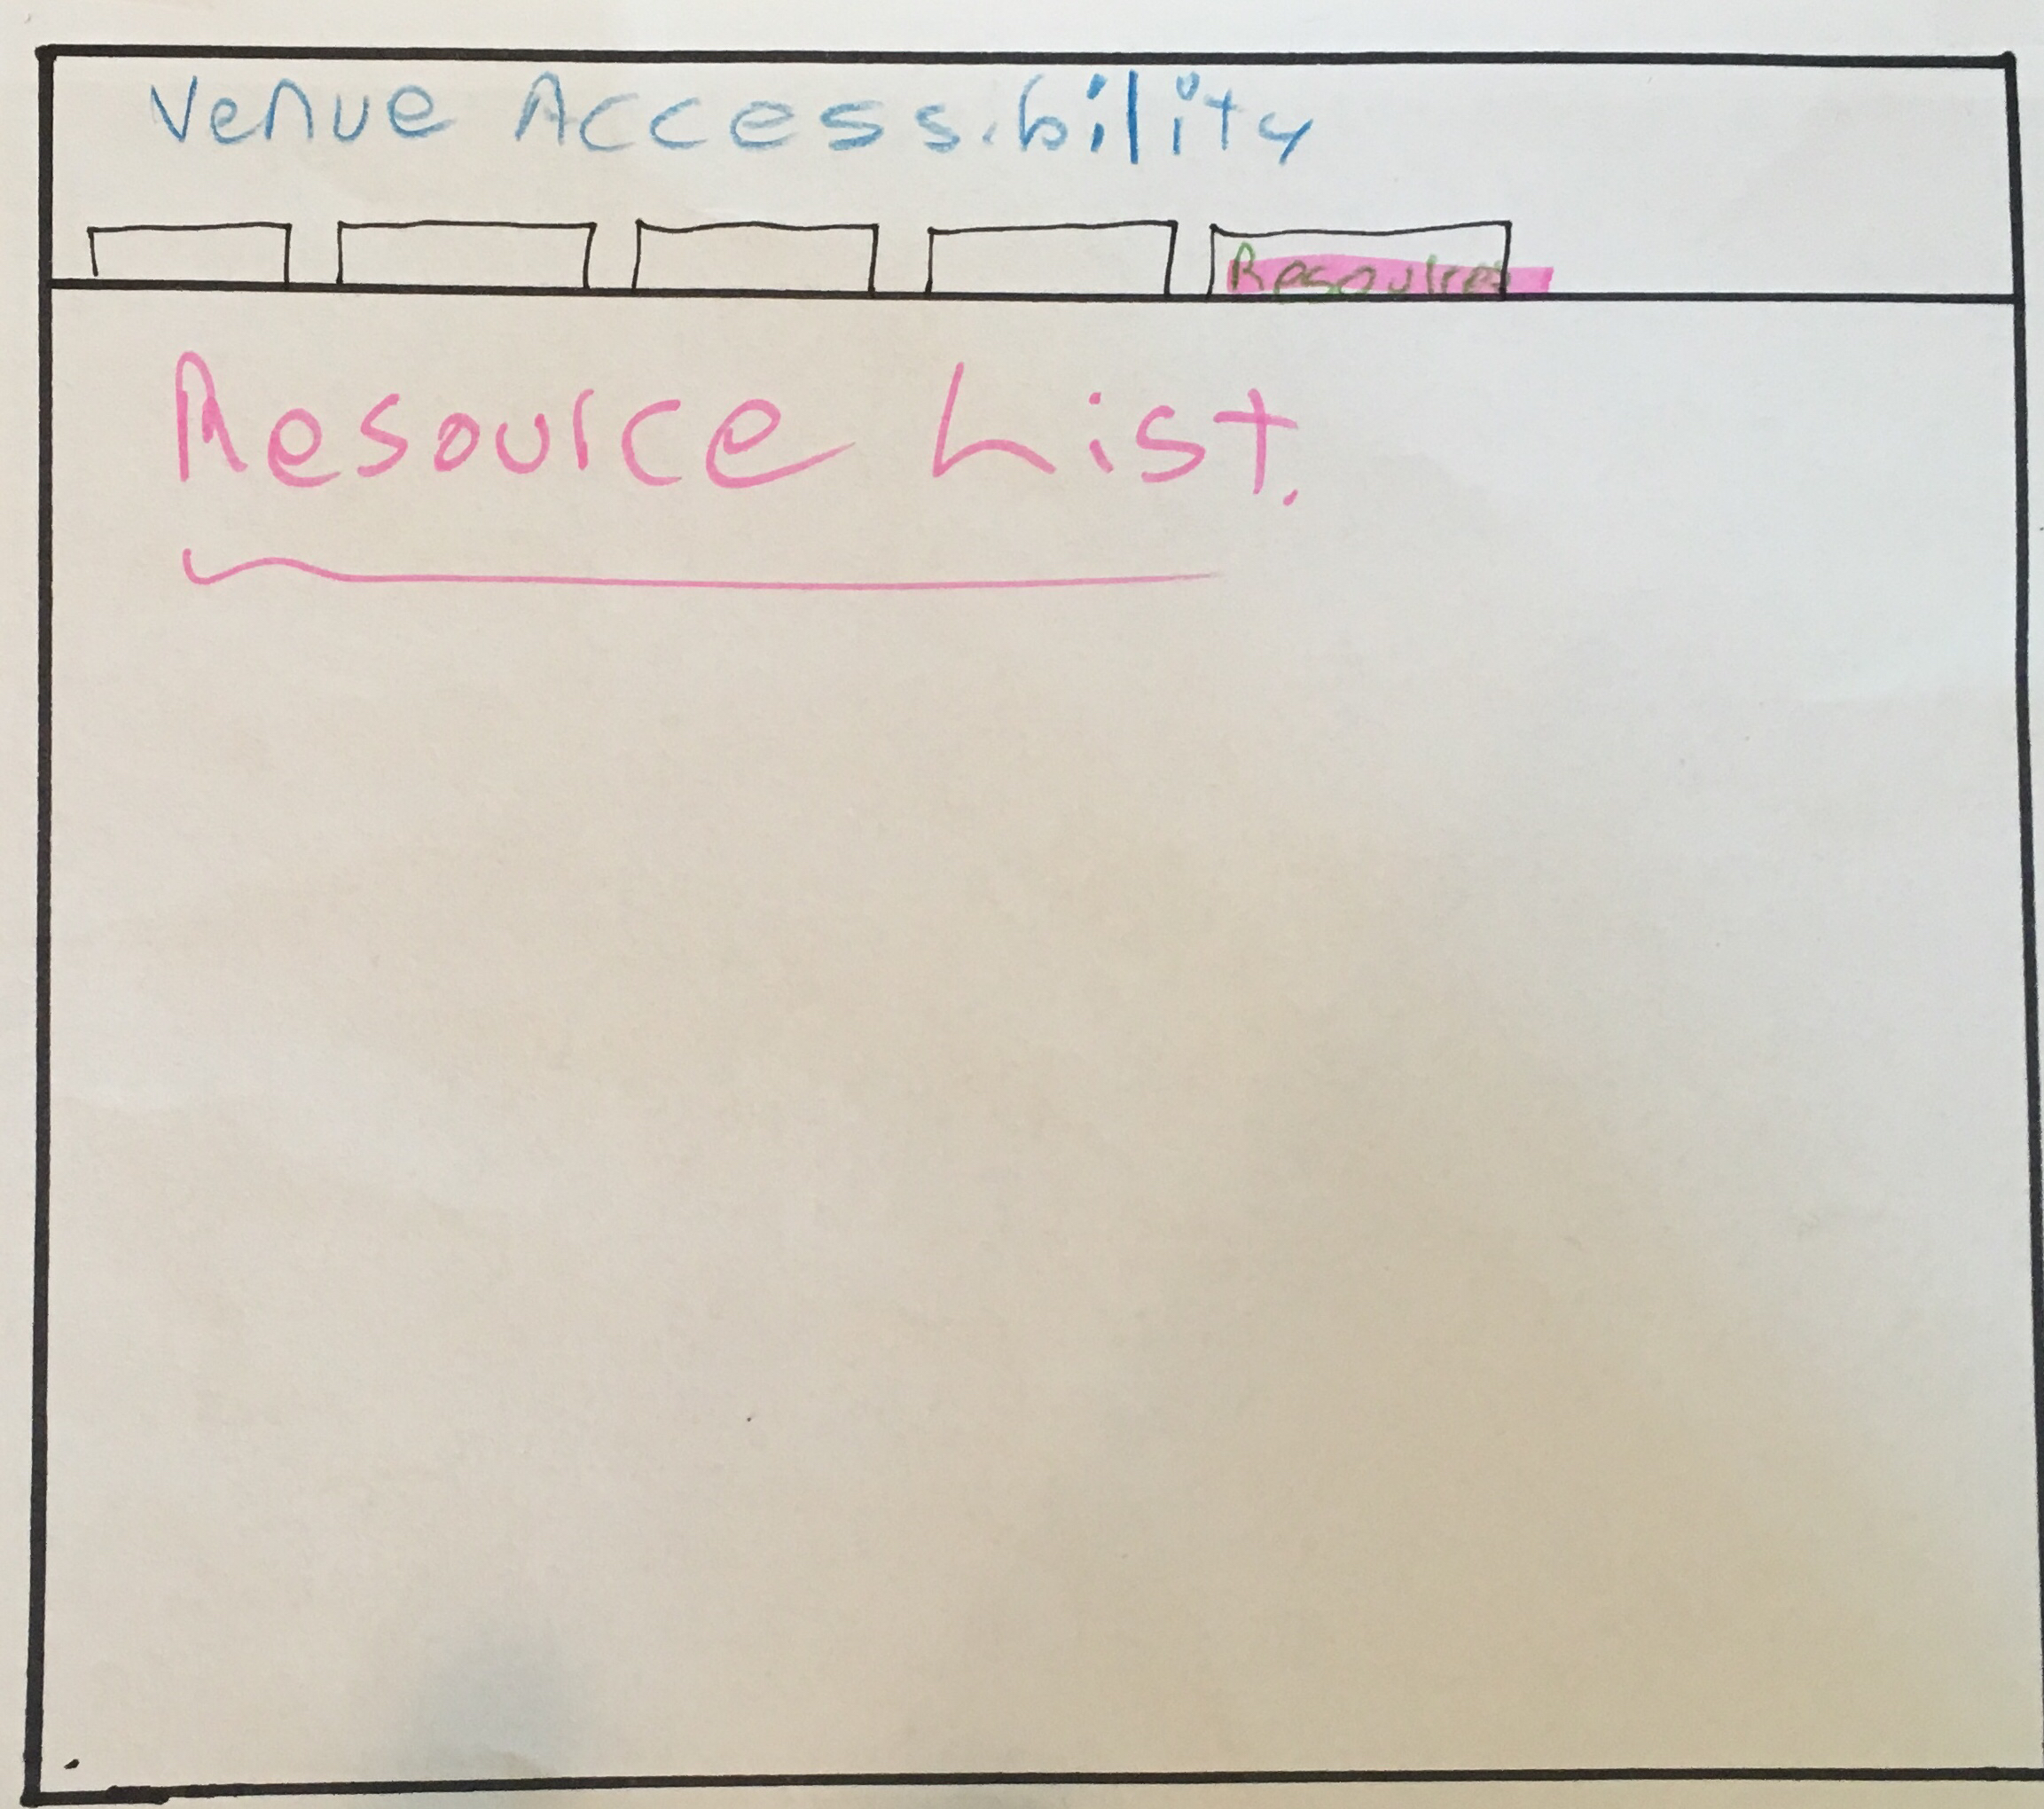 Venue Accessibility
Resources
Resource List.